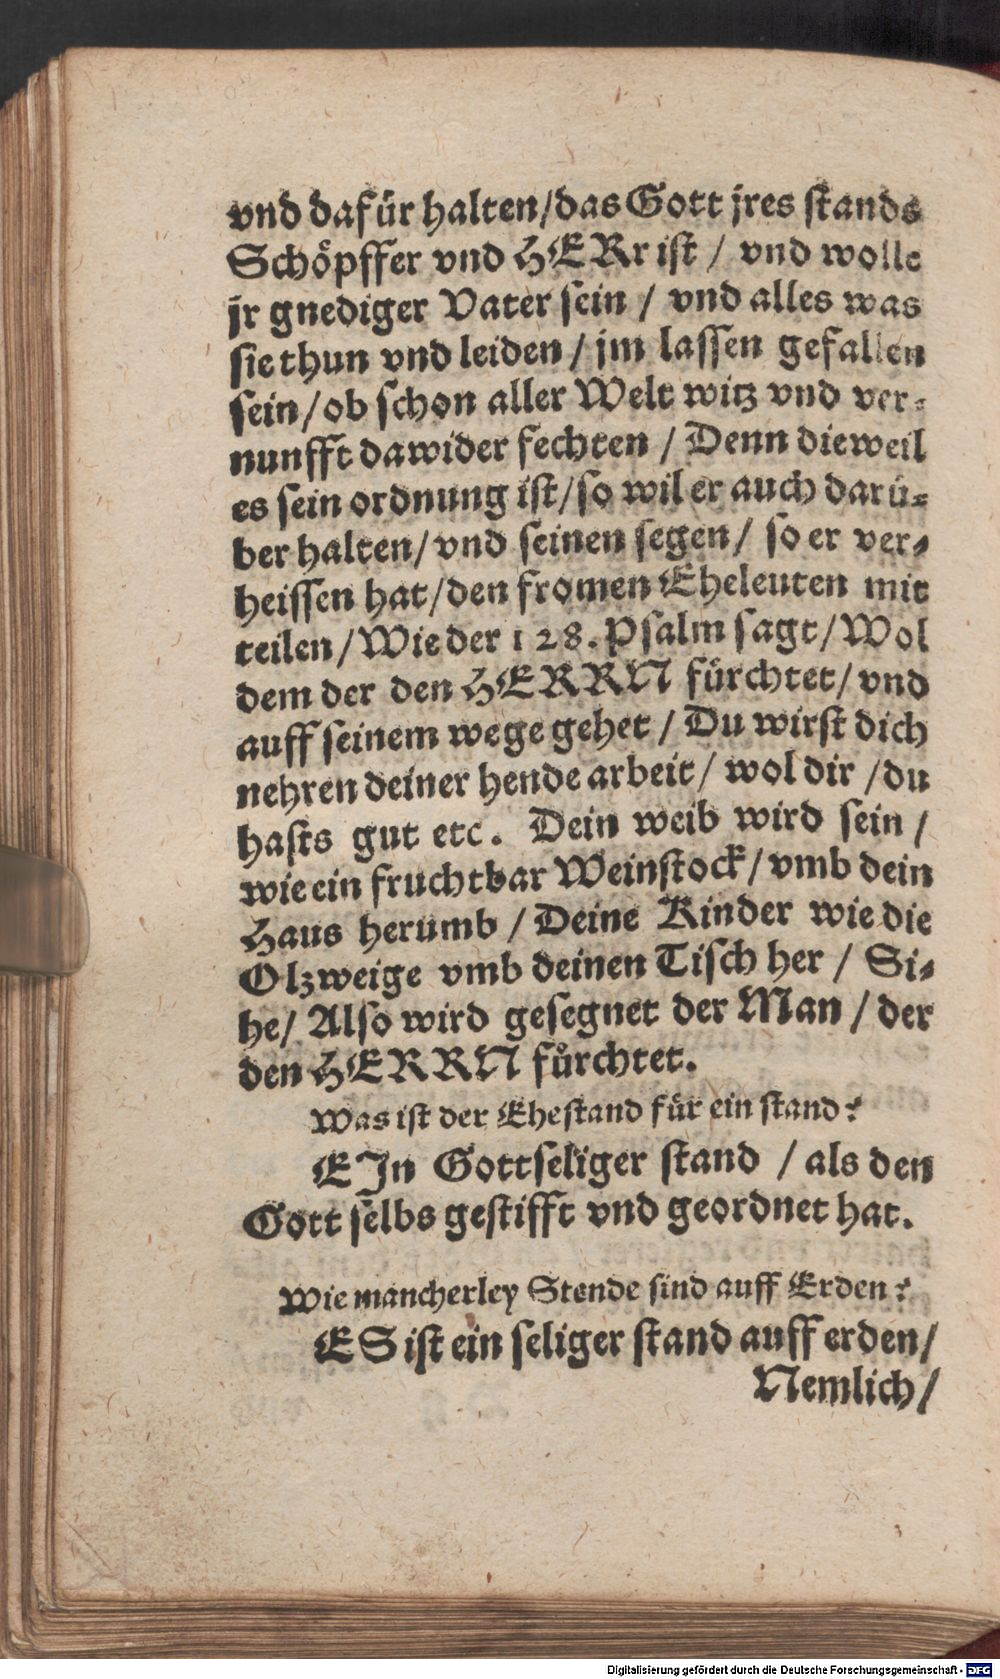 vnd dafür halten/das Gott jres stands
Schöpffer vnd HERr ist / vnd wolle
jr gnediger Vater sein / vnd alles was
sie thun vnd leiden / jm lassen gefallen
sein/ob schon aller Welt witz vnd ver-
nunfft dawider fechten / Denn dieweil
es sein ordnung ist/so wil er auch darü-
ber halten/vnd seinen segen/ so er ver-
heissen hat/den fromen Eheleuten mit
teilen/Wie der 128. Psalm sagt/Wol
dem der den HERRN fürchtet/ vnd
auff seinem wege gehet / Du wirst dich
nehren deiner hende arbeit/ wol dir /du
hasts gut etc. Dein weib wird sein /
wie ein fruchtbar Weinstock/vmb dein
Haus herumb / Deine Kinder wie die
Olzweige vmb deinen Tisch her / Si-
he/ Also wird gesegnet der Man / der
den HERRN fůrchtet.
Was ist der Ehestand für ein stand?
EJn Gottseliger stand / als den
Gott selbs gestifft vnd geordnet hat.
Wie mancherley Stende sind auff Erden?
ES ist ein seliger stand auff erden/
Nemlich/
Digitalisierung gefördert durch die Deutsche Forschungsgemeinschaft - DFG